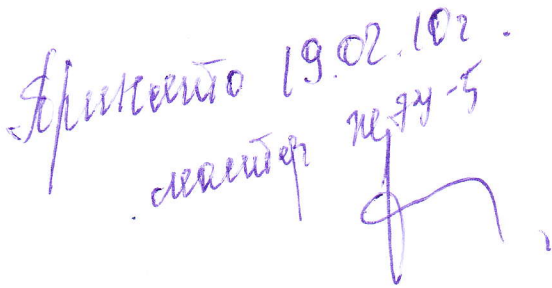 Принято 19.02.10г.
мастер жэу-5